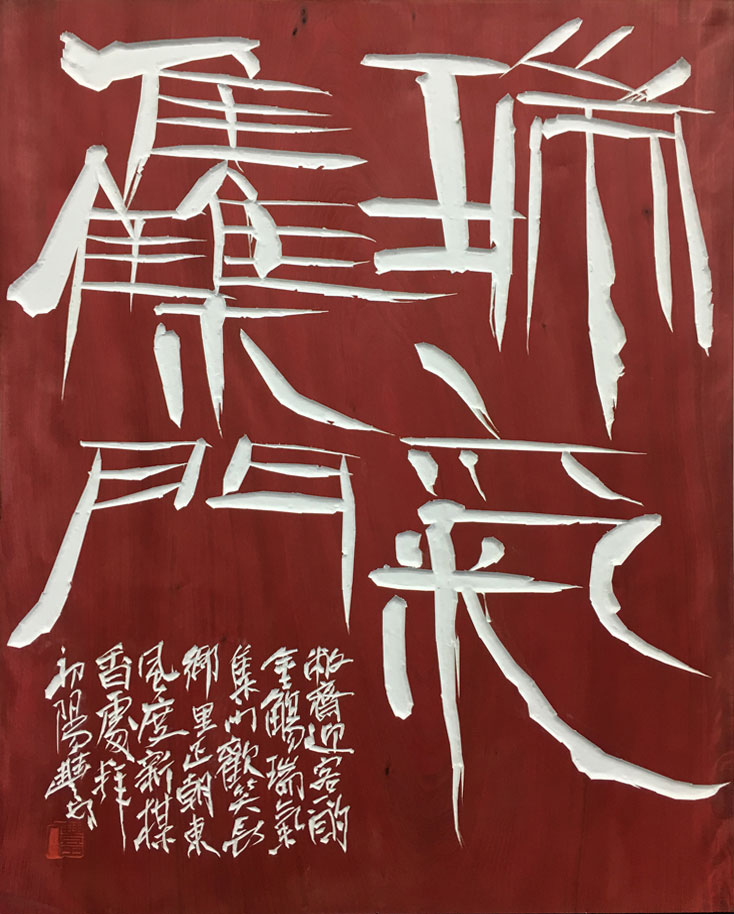 瑞氣
雧門
敝齋迎客酌
金觴瑞氣
集門歡笑長
鄉里正朝東
風度新楳
香處拜
初陽